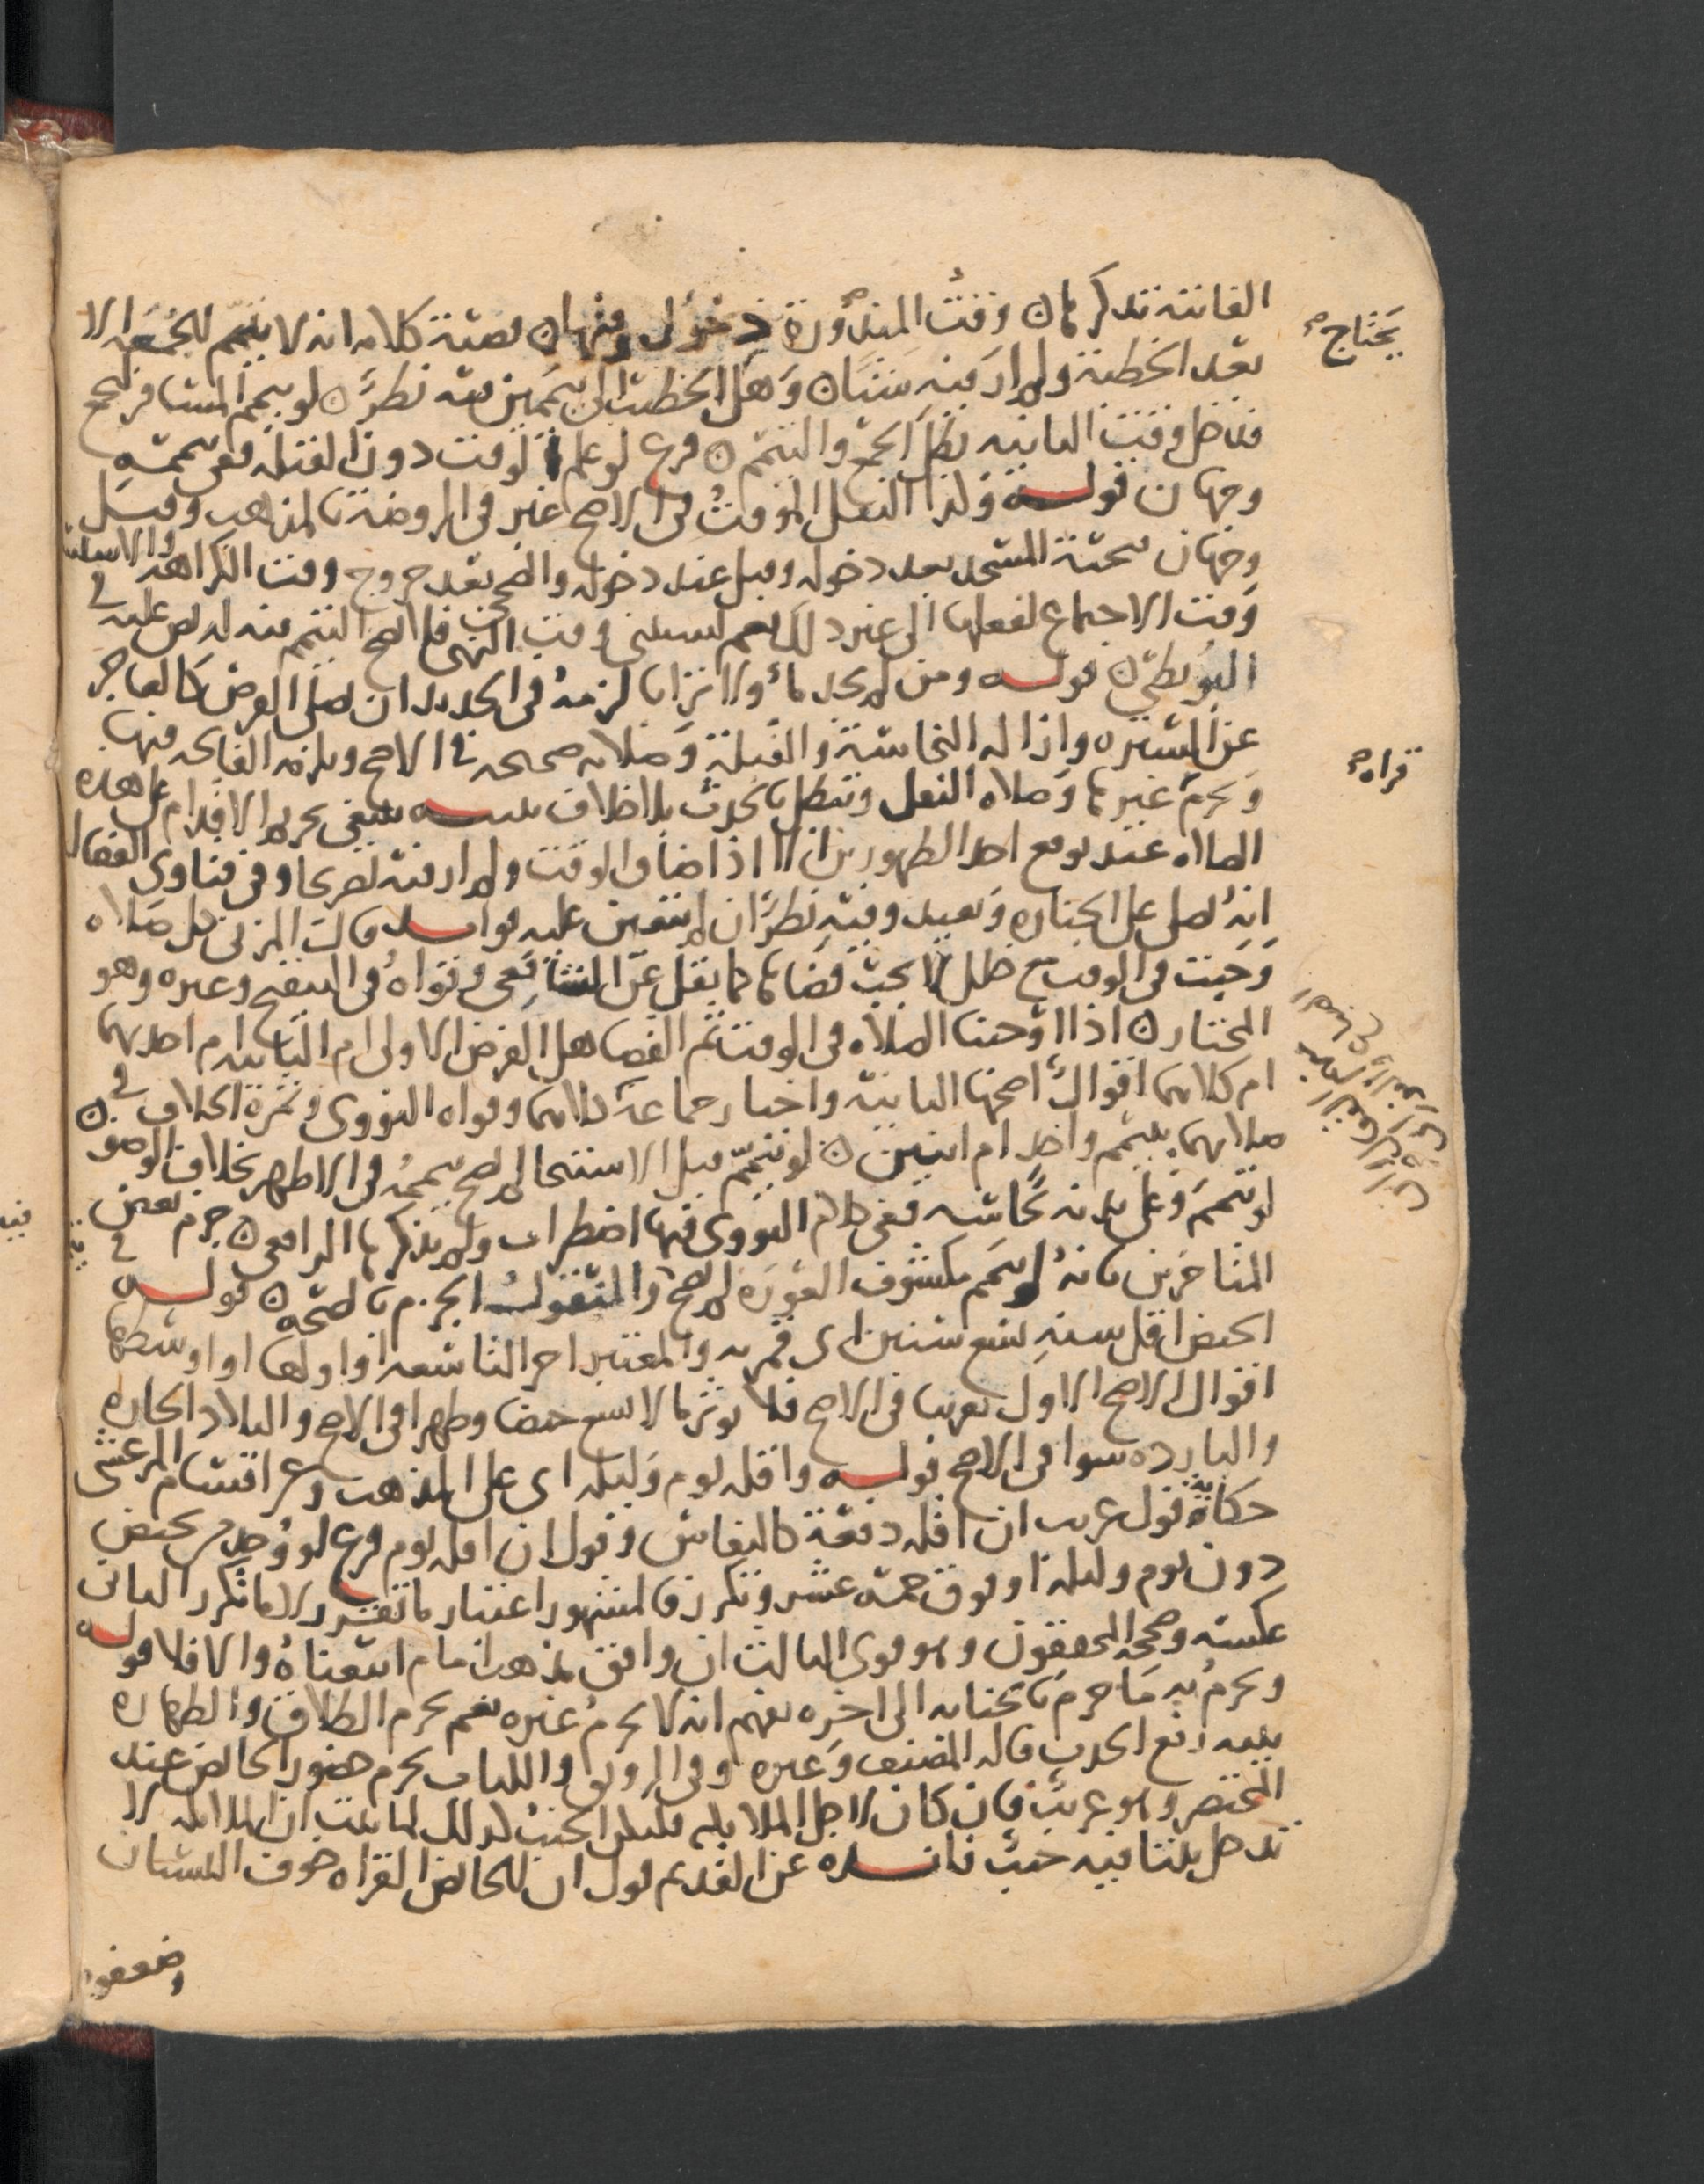 الفائتة تذكرها ن وقت المنذورة دخول وقتها ن قضية كلامه انه لا يتيمم للجمعة الا
بعد الخطبة ولم ار فيه شيئا ن وهل الخطبتان تيممين فيه نظر ن لو تيمم المسافر للجمع
فدخل وقت الثانية بطل الجمع والتيمم ن فرع لو علم الوقت دون القبلة ففي تيممه
وجهان قوله وكذا النفل الموقت في الاصح عبر في الروضة بالمذهب وقيل
وجهان تحية المسجد بعد دخوله وقيل عند دخوله والصحيح بعد خروج وقت الكراهة والاستسقاء
وقت الاجتماع لفعلها الى غير ذلك نعم يستثنى وقت النهي فلا يصح التيمم فيه له نص عليه في
البويطي ن قوله ومن لم يجد ماء ولا ترابا لزمه في الجديد ان يصلي الفرض كالعاجز
عن السترة وازالة النجاسة والقبلة وصلاته صحيحة في الاصح ويلزمه الفاتحة فيها
ويحرم غيرها وصلاة النفل وتبطل بالحدث بلا خلاف تنبيه ينبغي تحريم الاقدام على هذه
الصلاة عند توقع احد الطهورين الا اذا ضاق الوقت ولم ار فيه تصريحا وفي فتاوى القفال
انه يصلي على الجنازة ويعيد وفيه نظر ان لم تتعين عليه قوله قال المزني كل صلاة
وجبت في الوقت مع خلل لا يجب قضاؤها كما نقل عن الشافعي وقواه في التنقيح وغيره وهو
المختار ن اذا اوجبنا الصلاة في الوقت ثم القضا هل الفرض الاولى ام الثانية ام احدهما
ام كلاهما اقوال اصحها الثانية واختار جماعة كلاهما وقواه النووي وثمرة الخلاف في
صلاتهما بتيمم واحد ام اثنين ن لو تيمم قبل الاستنجا لم يصح تيممه في الاظهر بخلاف الوضو ن
لو تيمم وعلى بدنه نجاسة ففي كلام النووي فيها اضطراب ولم يذكرها الرافعي ن جزم بعض
المتاخرين بانه لو تيمم مكشوف العورة لم يصح والمنقول الجزم بالصحة ن قوله
الحيض اقل سنه تسع سنين اي قمرية والمعتبر اخر التاسعة او اولها او اوسطها
اقوال الاصح الاول تقريبا في الاصح فلا يؤثر ما لا يسع حيضا وطهرا في الاصح والبلاد الحارة
والباردة سوا في الاصح قوله واقله يوم وليلة اي على المذهب وعن اقسام المرعشي
حكاية قول غريب ان اقله دفعة كالنفاس وقول ان اقله يوم فرع لو وجد من تحيض
دون يوم وليلة او فوق خمسة عشر وتكرر فالمشهور اعتبار ما تقرر لا ما تكرر الثاني
عكسه وصححه المحققون وهو قوي الثالث ان وافق مذهب امام اتبعناه والا فلا قوله
ويحرم به ما حرم بالجنابة الى اخره يفهم انه لا يحرم غيره نعم يحرم الطلاق والطهارة
بنية رفع الحدث قاله المصنف وغيره وفي الرونق واللباب يحرم حضور الحائض عند
المحتضر وهو غريب فان كان لاجل الملائكة فليكن الجنب كذلك لما ثبت ان الملائكة لا
تدخل بيتا فيه جنب فائدة عن القديم قول ان للحائض القراءة خوف النسيان
وضعفوه
يحتاج صح
قراة صح